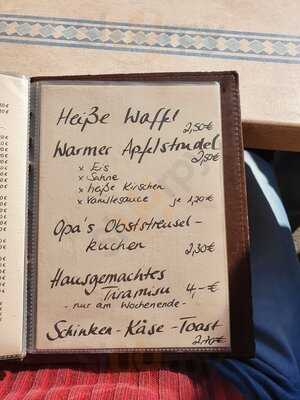 Heiße Waffl
2,50€
Warmer Apfelstrudel
2,50€
x Eis
x Sahne
x heiße Kirschen
x Vanillesauce je 1,20€
Opa's Obststreusel-
kuchen 2,30€
Hausgemachtes
Tiramisu 4,-€
- nur am Wochenende -
Schinken-Käse-Toast
2,70€